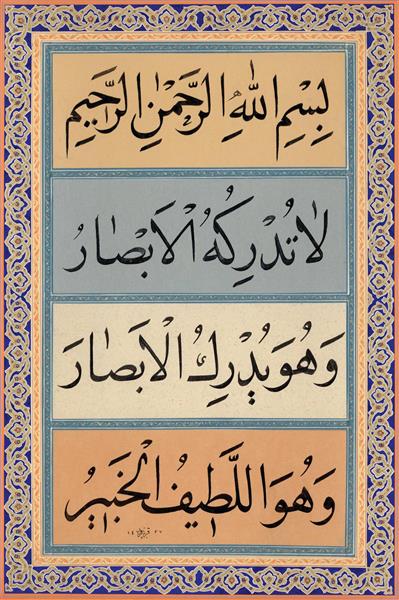 بِسْمِ اللّٰهِ الرَّحْمٰنِ الرَّحِيمِ
لَا تُدْرِكُهُ الْاَبْصَارُ
وَهُوَ يُدْرِكُ الْاَبْصَارَ
وَهُوَ اللَّطِيفُ الْخَبِيرُ